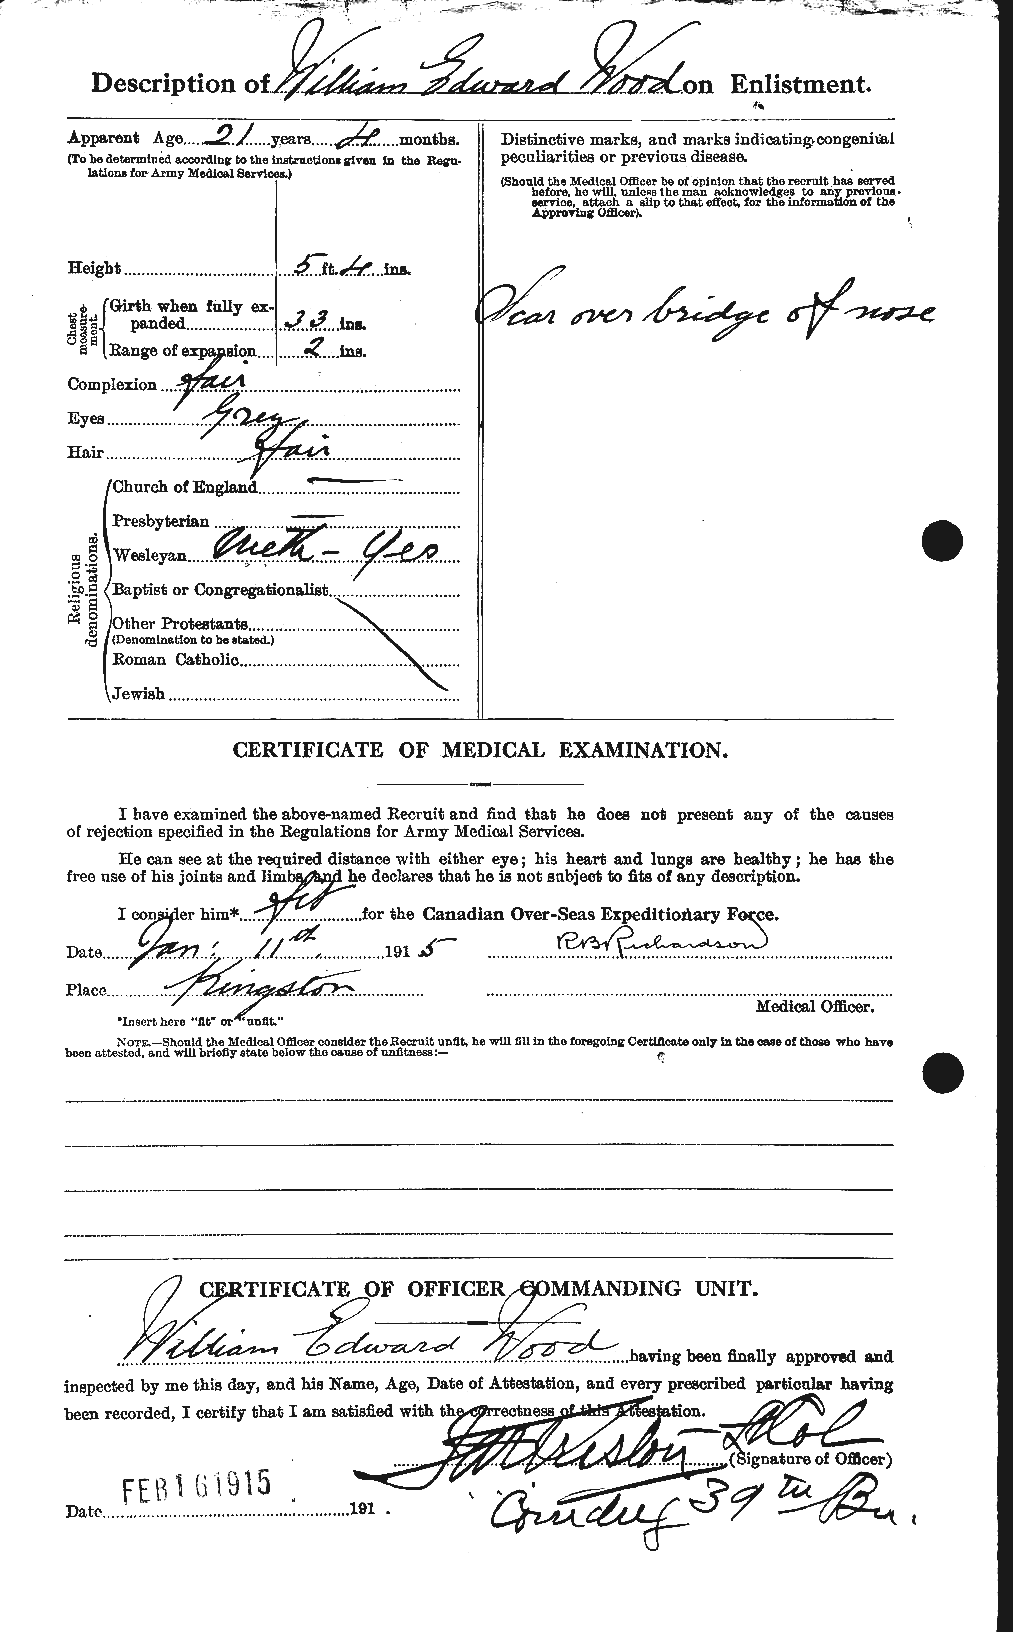 Description of William Edward Wood on Enlistment.
Apparent Age 21 years 4 months.
(To be determined according to the instructions given in the Regu-
lations for Army Medical Services.)
Height 5 ft. 4 ins.
Chest measure-ment
Girth when fully ex-
panded 33 ins.
Range of expansion 2 ins.
Complexion fair
Eyes Grey
Hair fair
Religious denominations.
Church of England
Presbyterian
Wesleyan Meth - Yes
Baptist or Congregationalist
Other Protestants
(Denomination to be stated.)
Roman Catholic
Jewish
Distinctive marks, and marks indicating congenital
peculiarities or previous disease.
(Should the Medical Officer be of opinion that the recruit has served
before, he will, unless the man acknowledges to any previous
service, attach a slip to that effect, for the information of the
Approving Officer).
Scar over bridge of nose
CERTIFICATE OF MEDICAL EXAMINATION.
I have examined the above-named Recruit and find that he does not present any of the causes
of rejection specified in the Regulations for Army Medical Services.
He can see at the required distance with either eye; his heart and lungs are healthy; he has the
free use of his joints and limbs, and he declares that he is not subject to fits of any description.
I consider him* fit for the Canadian Over-Seas Expeditionary Force.
Date Jan: 11th 1915 R B Richardson
Place Kingston
Medical Officer.
*Insert here "fit" or "unfit."
NOTE.—Should the Medical Officer consider the Recruit unfit, he will fill in the foregoing Certificate only in the case of those who have
been attested, and will briefly state below the cause of unfitness:—
CERTIFICATE OF OFFICER COMMANDING UNIT.
William Edward Wood having been finally approved and
inspected by me this day, and his Name, Age, Date of Attestation, and every prescribed particular having
been recorded, I certify that I am satisfied with the correctness of this Attestation.
(Signature of Officer)
FEB 16 1915
Date 191 .
Comdg 39th Bn.